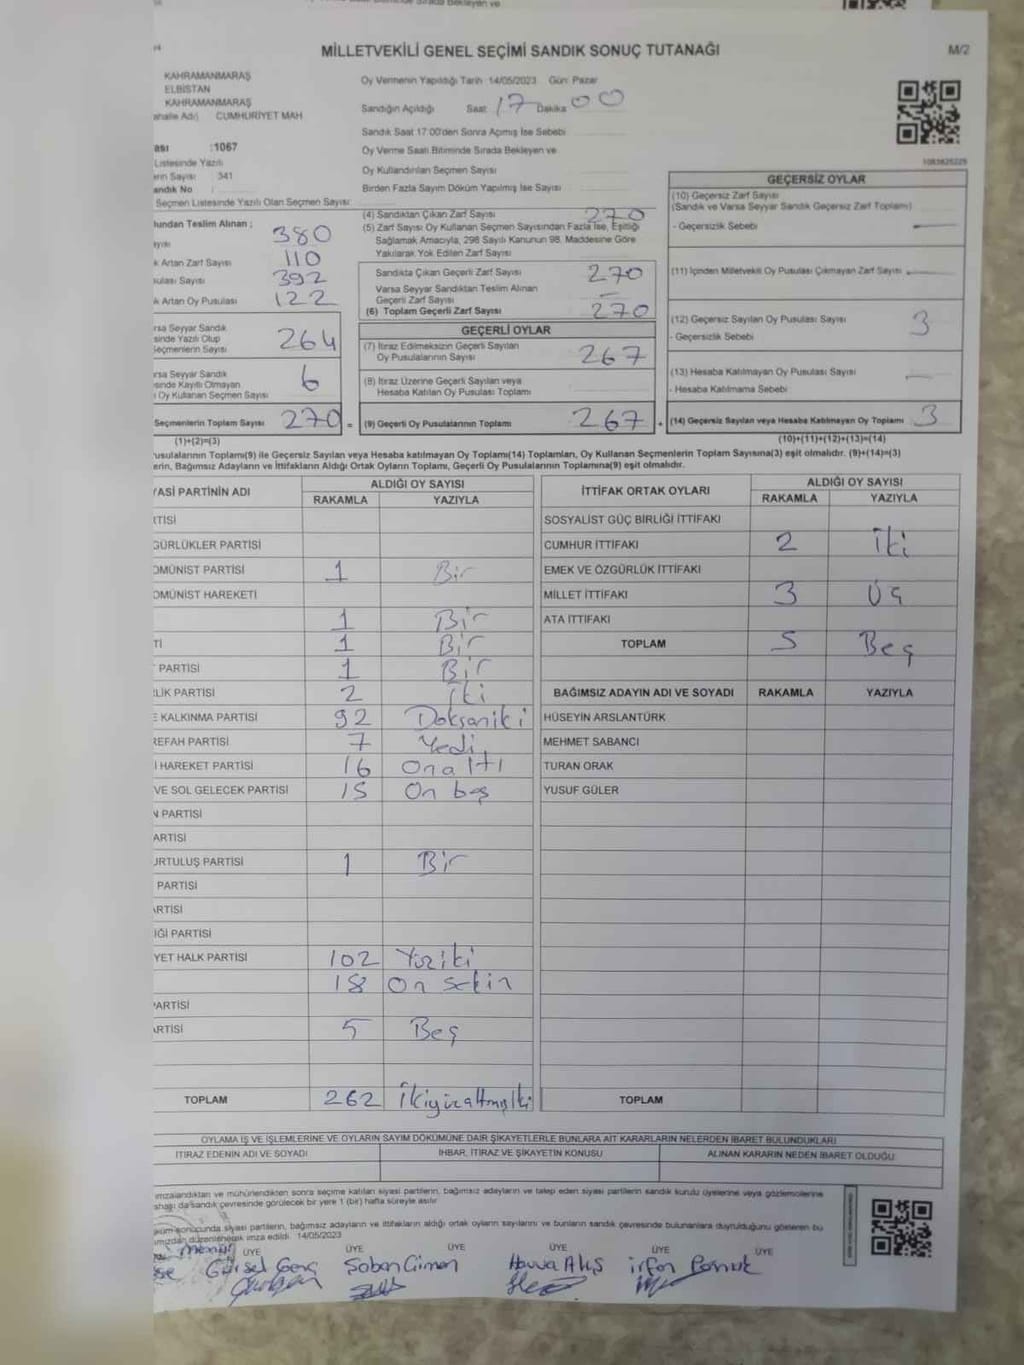 MİLLETVEKİLİ GENEL SEÇİMİ SANDIK SONUÇ TUTANAĞI
M/2
KAHRAMANMARAŞ
ELBİSTAN
KAHRAMANMARAŞ
CUMHURİYET MAH
Oy Vermenin Yapıldığı Tarih :14/05/2023 Gün: Pazar
Sandığın Açıldığı Saat 17 Dakika 00
Sandık Saat 17:00'den Sonra Açımış İse Sebebi
Oy Verme Saati Bitiminde Sırada Bekleyen ve
Oy Kullandırılan Seçmen Sayısı
Birden Fazla Sayım Döküm Yapılmış İse Sayısı
:1067
Listesinde Yazılı
Sayısı : 341
andık No :
Seçmen Listesinde Yazılı Olan Seçmen Sayısı
undan Teslim Alınan ;
380
k Artan Zarf Sayısı 110
Sayısı 392
k Artan Oy Pusulası 122
rsa Seyyar Sandık
sinde Yazılı Olup
Seçmenlerin Sayısı 264
rsa Seyyar Sandık
sinde Kayıtlı Olmayan
Oy Kullanan Seçmen Sayısı 6
Seçmenlerin Toplam Sayısı 270 =
(1)+(2)=(3)
(4) Sandıktan Çıkan Zarf Sayısı 270
(5) Zarf Sayısı Oy Kullanan Seçmen Sayısından Fazla İse, Eşitliği
Sağlamak Amacıyla, 298 Sayılı Kanunun 98. Maddesine Göre
Yakılarak Yok Edilen Zarf Sayısı
Sandıkta Çıkan Geçerli Zarf Sayısı 270
Varsa Seyyar Sandıktan Teslim Alınan
Geçerli Zarf Sayısı —
(6) Toplam Geçerli Zarf Sayısı 270
GEÇERLİ OYLAR
(7) İtiraz Edilmeksizin Geçerli Sayılan
Oy Pusulalarının Sayısı 267
(8) İtiraz Üzerine Geçerli Sayılan veya
Hesaba Katılan Oy Pusulası Toplamı
(9) Geçerli Oy Pusulalarının Toplamı 267 +
GEÇERSİZ OYLAR
(10) Geçersiz Zarf Sayısı
(Sandık ve Varsa Seyyar Sandık Geçersiz Zarf Toplamı)
- Geçersizlik Sebebi —
(11) İçinden Milletvekili Oy Pusulası Çıkmayan Zarf Sayısı —
(12) Geçersiz Sayılan Oy Pusulası Sayısı 3
- Geçersizlik Sebebi
(13) Hesaba Katılmayan Oy Pusulası Sayısı —
- Hesaba Katılmama Sebebi
(14) Geçersiz Sayılan veya Hesaba Katılmayan Oy Toplamı 3
(10)+(11)+(12)+(13)=(14)
usulalarının Toplamı(9) ile Geçersiz Sayılan veya Hesaba katılmayan Oy Toplamı(14) Toplamları, Oy Kullanan Seçmenlerin Toplam Sayısına(3) eşit olmalıdır. (9)+(14)=(3)
erin, Bağımsız Adayların ve İttifakların Aldığı Ortak Oyların Toplamı, Geçerli Oy Pusulalarının Toplamına(9) eşit olmalıdır.
YASİ PARTİNİN ADI ALDIĞI OY SAYISI
RAKAMLA YAZIYLA
RTİSİ
GÜRLÜKLER PARTİSİ
OMÜNİST PARTİSİ 1 Bir
OMÜNİST HAREKETİ
1 Bir
Tİ 1 Bir
PARTİSİ 1 Bir
LİK PARTİSİ 2 İki
E KALKINMA PARTİSİ 92 Doksaniki
REFAH PARTİSİ 7 Yedi
İ HAREKET PARTİSİ 16 Onaltı
VE SOL GELECEK PARTİSİ 15 On beş
N PARTİSİ
ARTİSİ
URTULUŞ PARTİSİ 1 Bir
PARTİSİ
ARTİSİ
İĞİ PARTİSİ
YET HALK PARTİSİ 102 Yüziki
18 On sekin
PARTİSİ
ARTİSİ 5 Beş
TOPLAM 262 İkiyüzaltmışiki
İTTİFAK ORTAK OYLARI ALDIĞI OY SAYISI
RAKAMLA YAZIYLA
SOSYALİST GÜÇ BİRLİĞİ İTTİFAKI
CUMHUR İTTİFAKI 2 İki
EMEK VE ÖZGÜRLÜK İTTİFAKI
MİLLET İTTİFAKI 3 Üç
ATA İTTİFAKI
TOPLAM 5 Beş
BAĞIMSIZ ADAYIN ADI VE SOYADI RAKAMLA YAZIYLA
HÜSEYİN ARSLANTÜRK
MEHMET SABANCI
TURAN ORAK
YUSUF GÜLER
TOPLAM
OYLAMA İŞ VE İŞLEMLERİNE VE OYLARIN SAYIM DÖKÜMÜNE DAİR ŞİKAYETLERLE BUNLARA AİT KARARLARIN NELERDEN İBARET BULUNDUKLARI
İTİRAZ EDENİN ADI VE SOYADI İHBAR, İTİRAZ VE ŞİKAYETİN KONUSU ALINAN KARARIN NEDEN İBARET OLDUĞU
imzalandıktan ve mühürlendikten sonra seçime katılan siyasi partilerin, bağımsız adayların ve talep eden siyasi partilerin sandık kurulu üyelerine veya gözlemcilerine
da sandık çevresinde görülecek bir yere 1 (bir) hafta süreyle asılır
sonucunda siyasi partilerin, bağımsız adayların ve ittifakların aldığı ortak oyların sayılarını ve bunların sandık çevresinde bulunanlara duyrulduğunu gösteren bu
düzenlenerek imza edildi. 14/05/2023
ÜYE ÜYE ÜYE ÜYE ÜYE ÜYE
Gürsel Genç Şaban Çimen Havva Alış irfan Pamuk